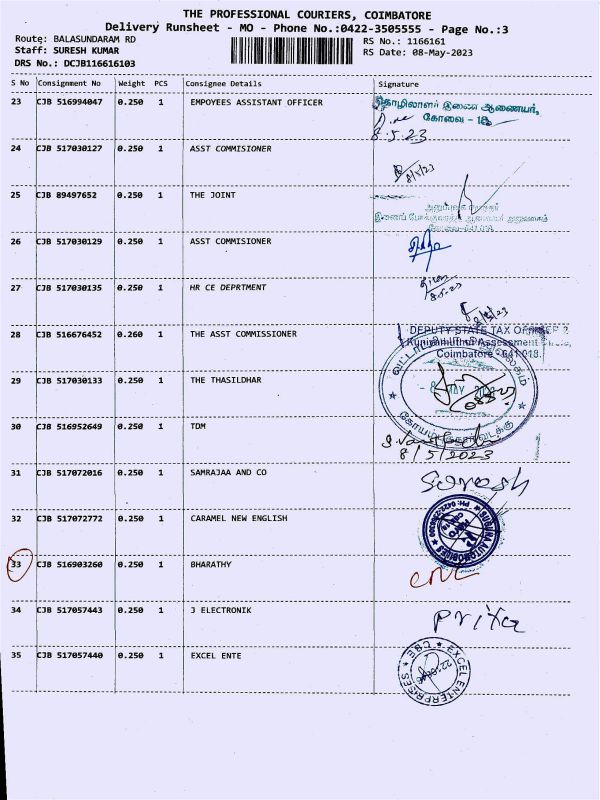 THE PROFESSIONAL COURIERS, COIMBATORE
Delivery Runsheet - MO - Phone No.:0422-3505555 - Page No.:3
Route: BALASUNDARAM RD RS No.: 1166161
Staff: SURESH KUMAR RS Date: 08-May-2023
DRS No.: DCJB116616103
S No Consignment No Weight PCS Consignee Details Signature
23 CJB 516994047 0.250 1 EMPOYEES ASSISTANT OFFICER தொழிலாளர் இணை ஆணையர்,
கோவை - 18
8.5.23
24 CJB 517030127 0.250 1 ASST COMMISIONER
8/5/23
25 CJB 89497652 0.250 1 THE JOINT
26 CJB 517030129 0.250 1 ASST COMMISIONER
27 CJB 517030135 0.250 1 HR CE DEPRTMENT
8.5.23
8/5/23
28 CJB 516676452 0.260 1 THE ASST COMMISSIONER DEPUTY STATE TAX OFFICER 2
Kuniyamuthur Assessment Circle,
Coimbatore - 641 018.
29 CJB 517030133 0.250 1 THE THASILDHAR
- 8 MAY 2023
30 CJB 516952649 0.250 1 TDM
8/5/2023
31 CJB 517072016 0.250 1 SAMRAJAA AND CO Suresh
32 CJB 517072772 0.250 1 CARAMEL NEW ENGLISH
33 CJB 516903260 0.250 1 BHARATHY
34 CJB 517057443 0.250 1 J ELECTRONIK Priya
35 CJB 517057440 0.250 1 EXCEL ENTE EXCEL ENTERPRISES CBE